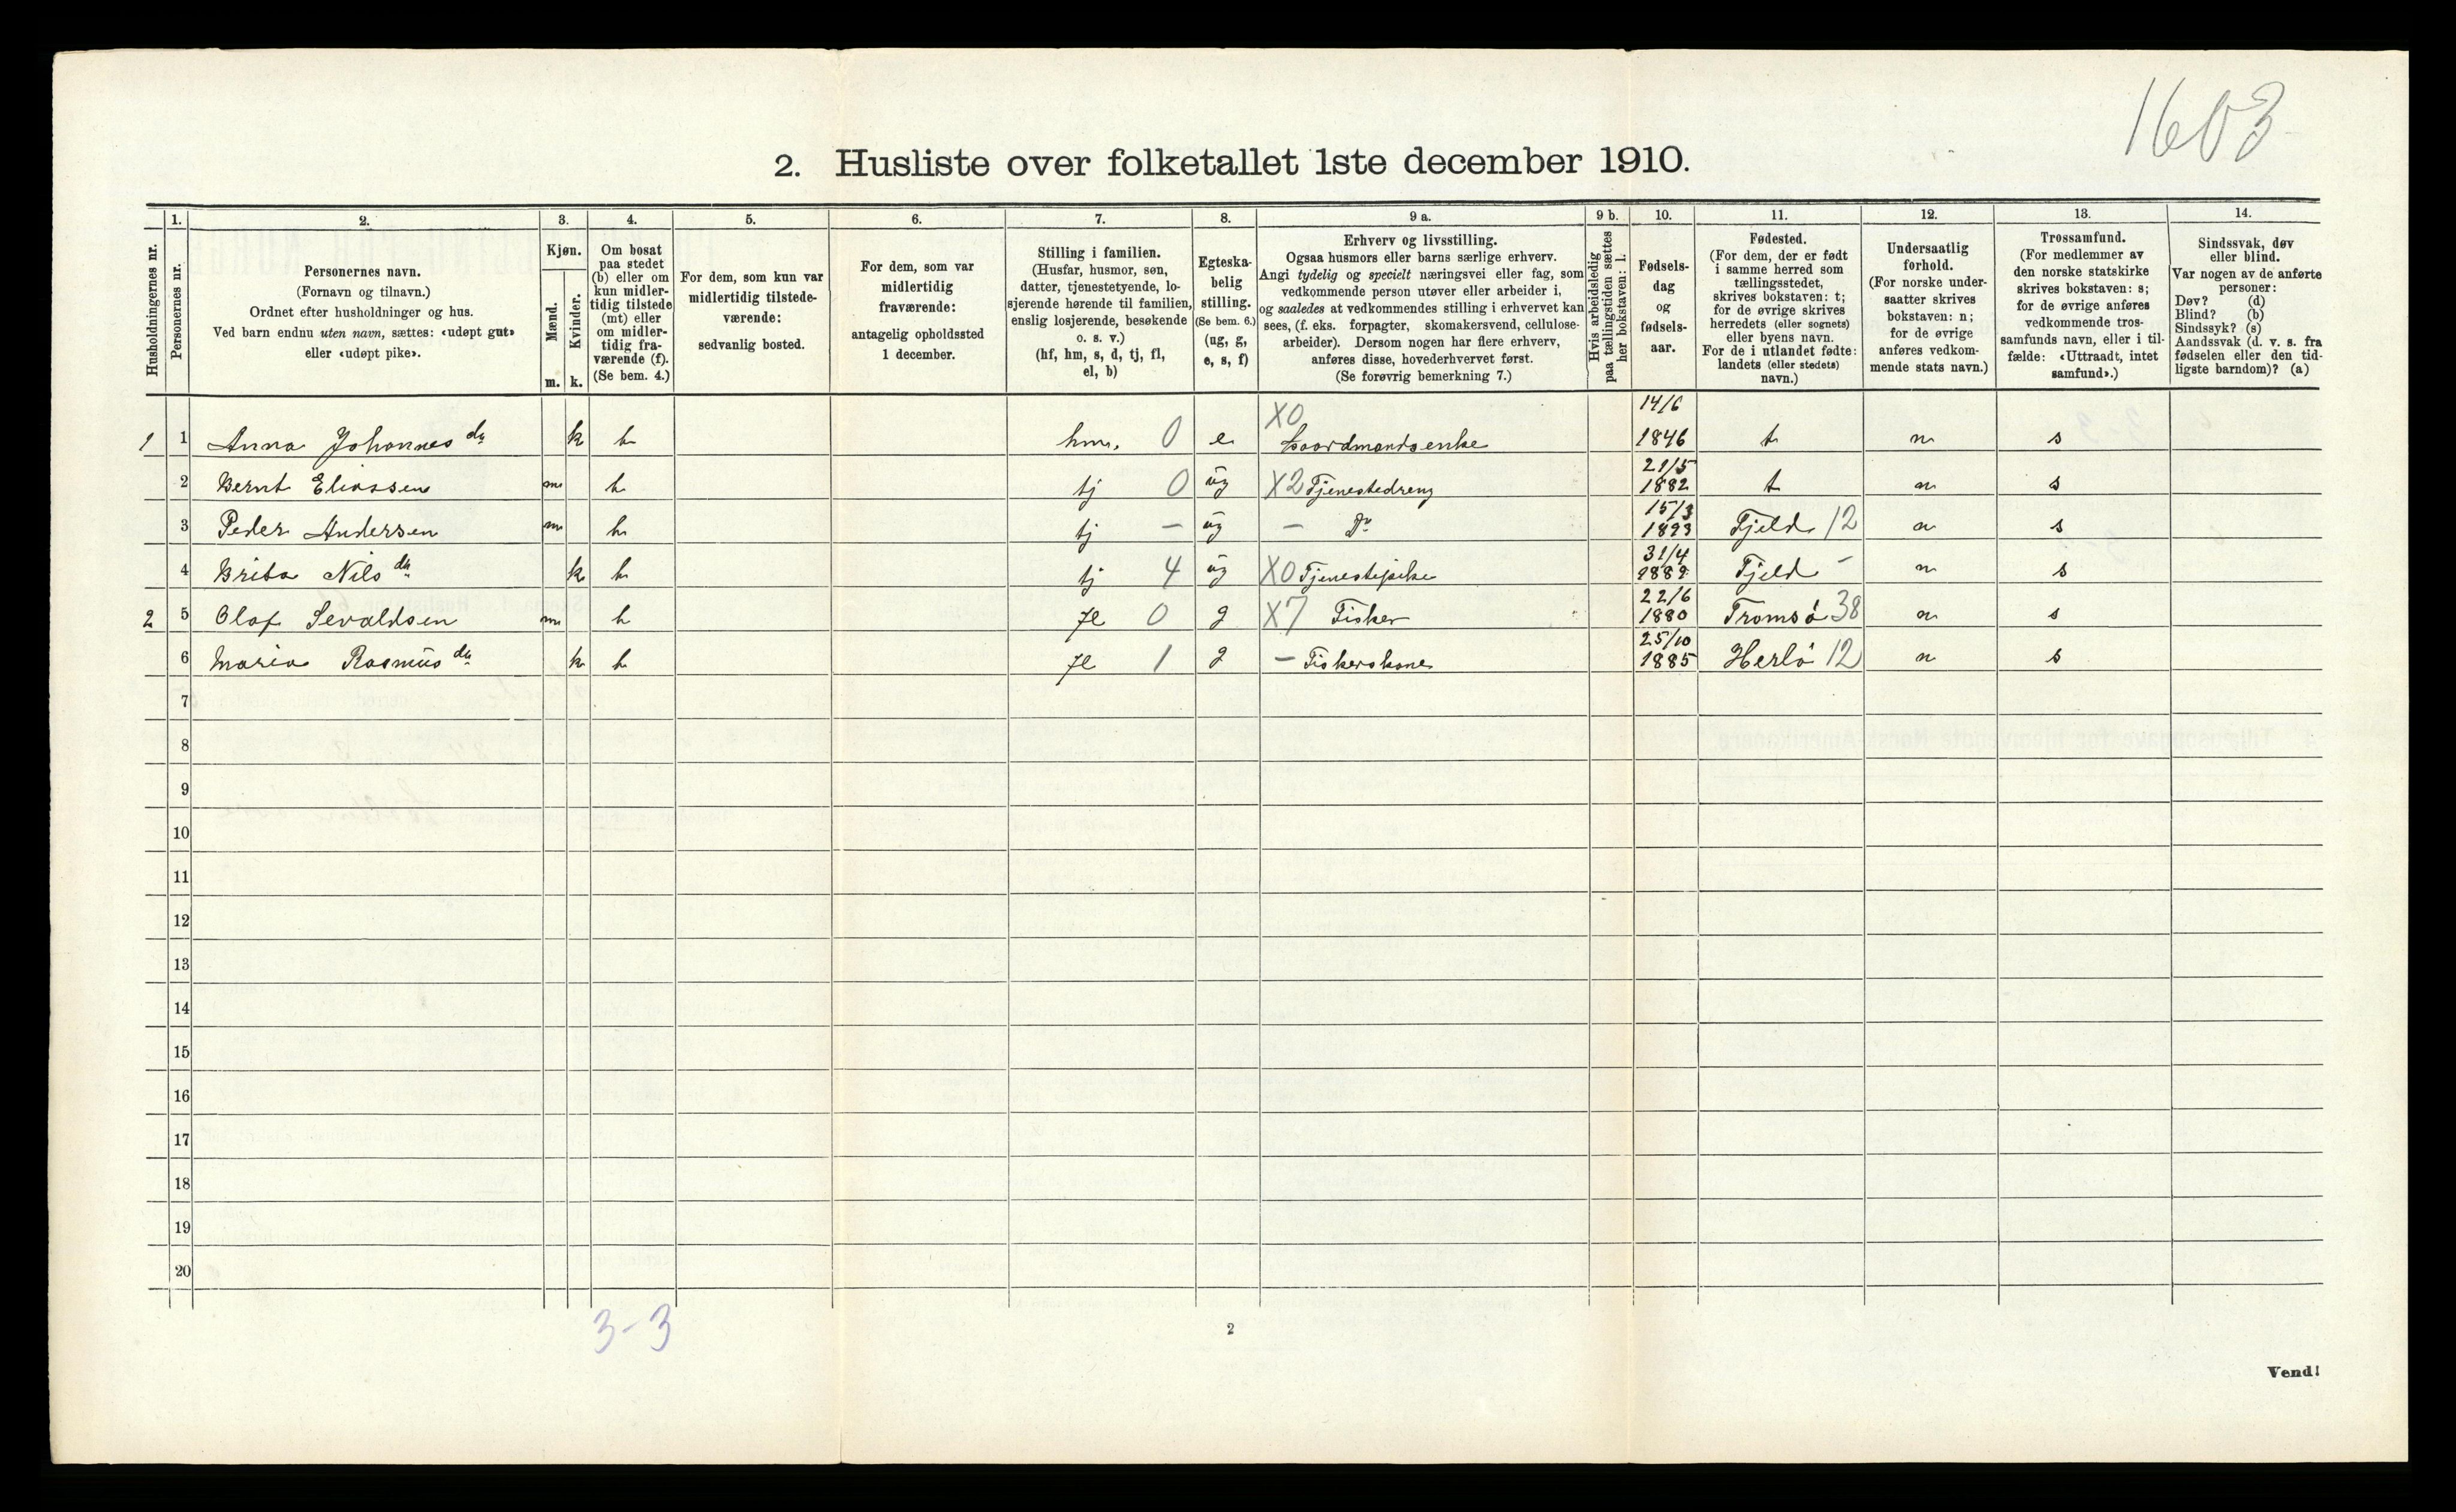 1603
2. Husliste over folketallet 1ste december 1910.
Husholdningernes nr.
1.
Personernes nr.
2.
Personernes navn.
(Fornavn og tilnavn.)
Ordnet efter husholdninger og hus.
Ved barn endnu uten navn, sættes: «udøpt gut»
eller «udøpt pike».
3.
Kjøn.
Mænd.
Kvinder.
m. k.
4.
Om bosat
paa stedet
(b) eller om
kun midler-
tidig tilstede
(mt) eller
om midler-
tidig fra-
værende (f).
(Se bem. 4.)
5.
For dem, som kun var
midlertidig tilstede-
værende:
sedvanlig bosted.
6.
For dem, som var
midlertidig
fraværende:
antagelig opholdssted
1 december.
7.
Stilling i familien.
(Husfar, husmor, søn,
datter, tjenestetyende, lo-
sjerende hørende til familien,
enslig losjerende, besøkende
o. s. v.)
(hf, hm, s, d, tj, fl,
el, b)
8.
Egteska-
belig
stilling.
(Se bem. 6.)
(ug, g,
e, s, f)
9 a.
Erhverv og livsstilling.
Ogsaa husmors eller barns særlige erhverv.
Angi tydelig og specielt næringsvei eller fag, som
vedkommende person utøver eller arbeider i,
og saaledes at vedkommendes stilling i erhvervet kan
sees, (f. eks. forpagter, skomakersvend, cellulose-
arbeider). Dersom nogen har flere erhverv,
anføres disse, hovederhvervet først.
(Se forøvrig bemerkning 7.)
9 b.
Hvis arbeidsledig
paa tællingstiden sættes
her bokstaven: l.
10.
Fødsels-
dag
og
fødsels-
aar.
11.
Fødested.
(For dem, der er født
i samme herred som
tællingsstedet,
skrives bokstaven: t;
for de øvrige skrives
herredets (eller sognets)
eller byens navn.
For de i utlandet fødte:
landets (eller stedets)
navn.)
12.
Undersaatlig
forhold.
(For norske under-
saatter skrives
bokstaven: n;
for de øvrige
anføres vedkom-
mende stats navn.)
13.
Trossamfund.
(For medlemmer av
den norske statskirke
skrives bokstaven: s;
for de øvrige anføres
vedkommende tros-
samfunds navn, eller i til-
fælde: «Uttraadt, intet
samfund».)
14.
Sindssvak, døv
eller blind.
Var nogen av de anførte
personer:
Døv? (d)
Blind? (b)
Sindssyk? (s)
Aandssvak (d. v. s. fra
fødselen eller den tid-
ligste barndom)? (a)
1 1 Anna Johannes da k b hm. 0 e X0 Gaardmandsenke 14/6 1846 t n s
2 Bernt Eliassen m b tj 0 ug X2 Tjenestedreng 21/5 1882 t n s
3 Peder Andersen m b tj – ug – Do 15/3 1893 Fjeld 12 n s
4 Brita Nils da k b tj 4 ug X0 Tjenestepike 31/4 Fjeld – n s
2 5 Olaf Sevaldsen m b fl 0 g X7 Fisker 22/6 1880 Tromsö 38 n s
6 Maria Rasmus da k b fl 1 g – Fiskerskone 25/10 1885 Herlö 12 n s
7
8
9
10
11
12
13
14
15
16
17
18
19
20
3-3
2
Vend!